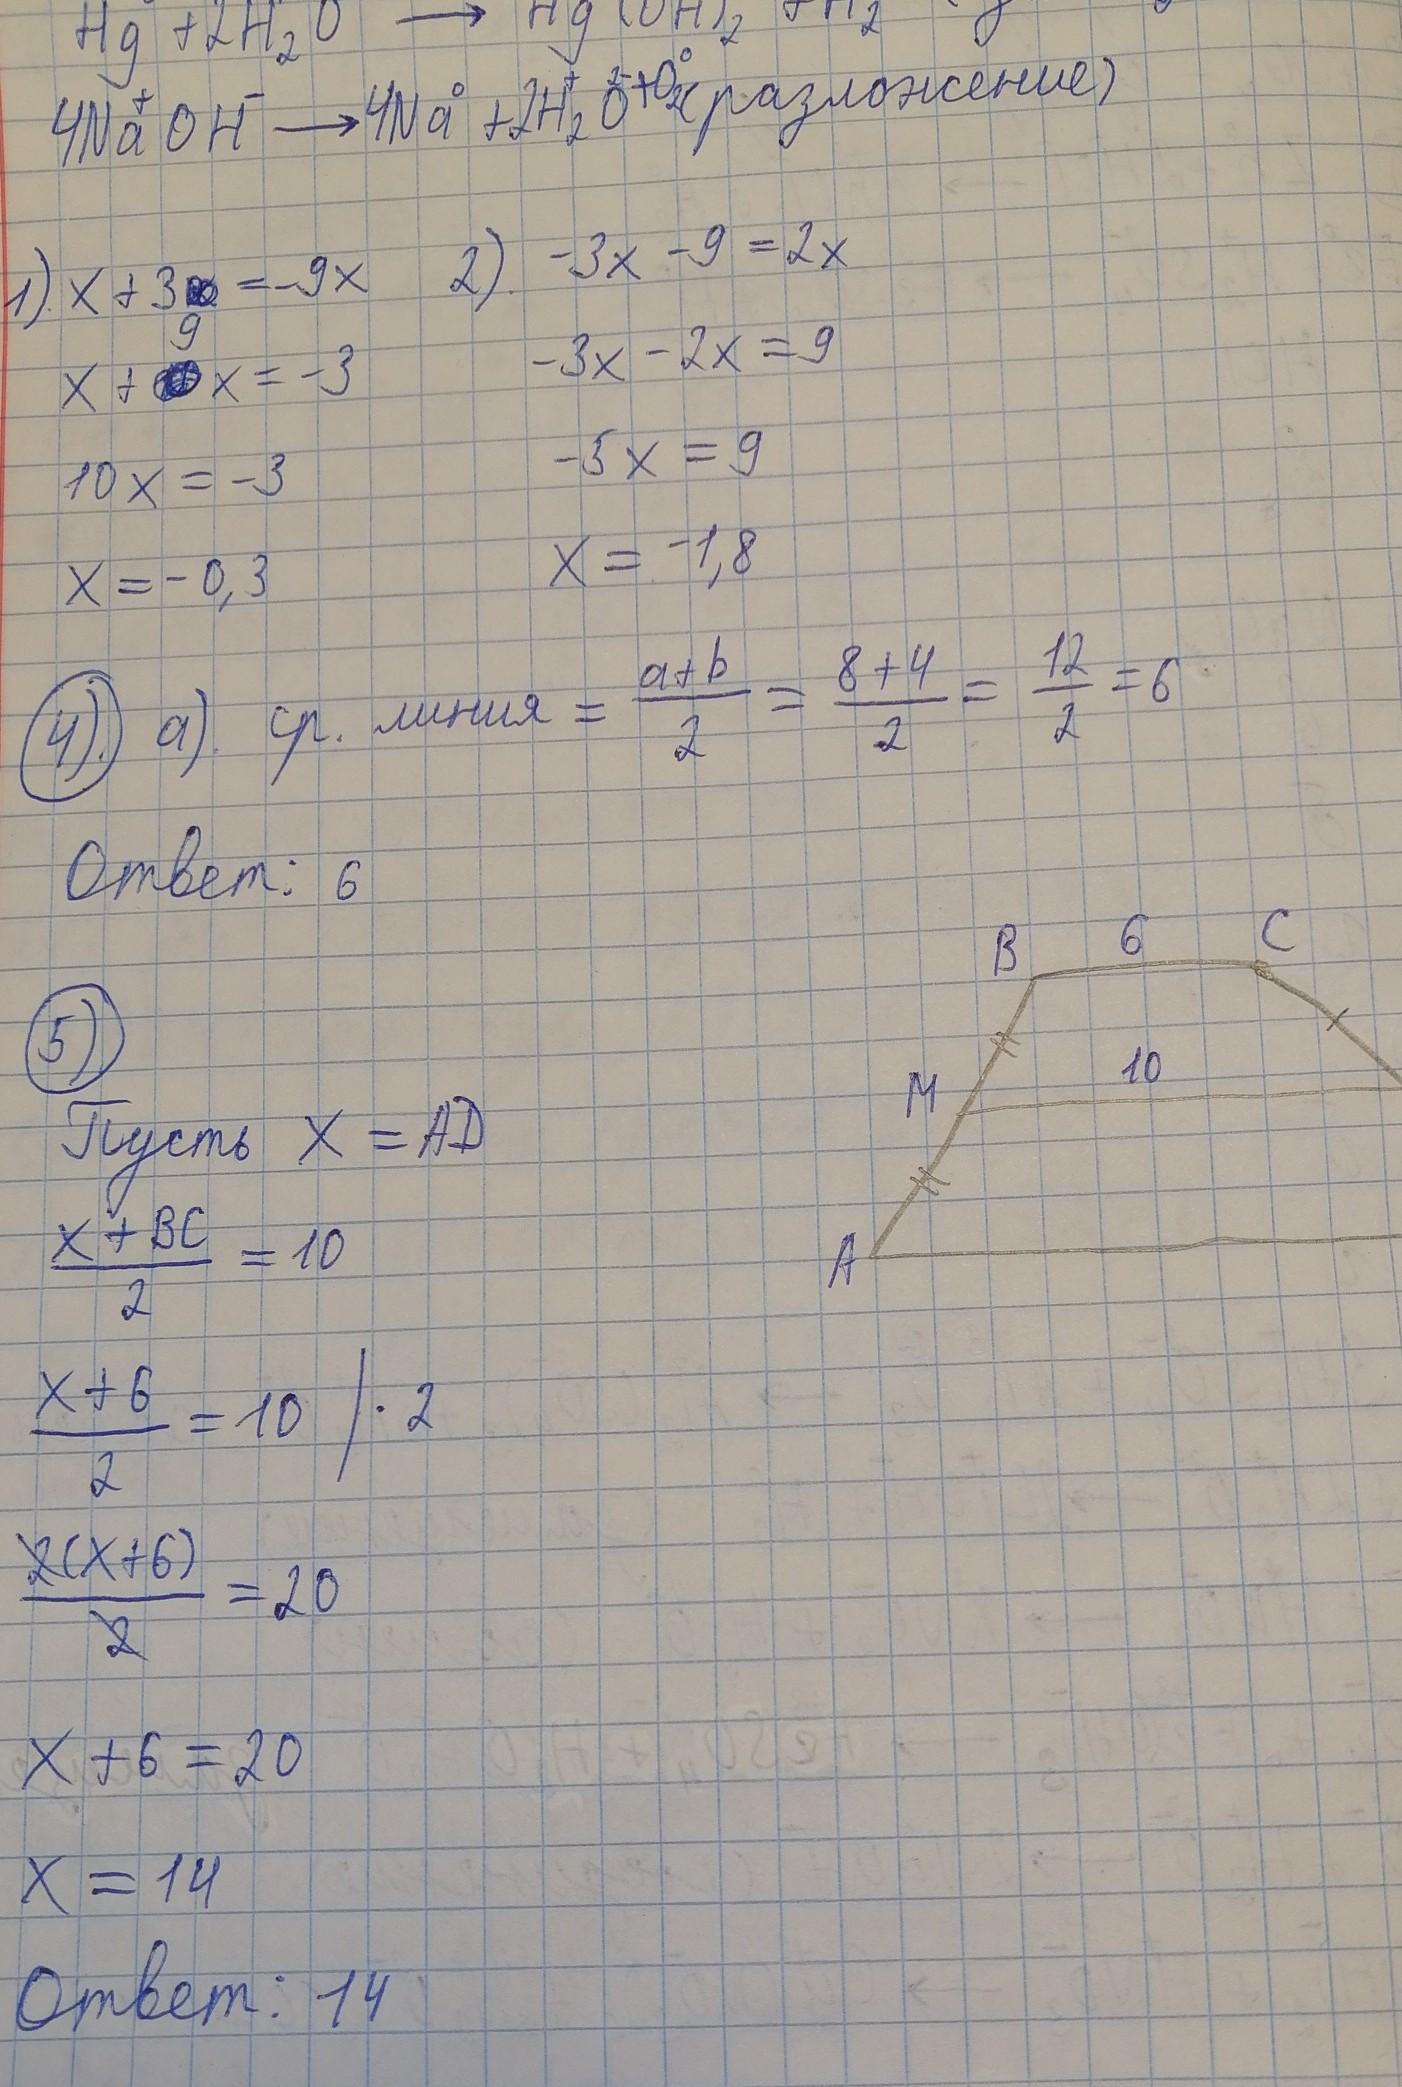 Hg + 2H₂O → Hg(OH)₂ + H₂
4Na⁺OH⁻ → 4Na⁰ + 2H₂⁺O²⁻ + O₂⁰ (разложение)
1). x + 3 = -9x
x + 9x = -3
10x = -3
x = -0,3
2). -3x - 9 = 2x
-3x - 2x = 9
-5x = 9
x = -1,8
4). а). ср. линия = (a+b)/2 = (8+4)/2 = 12/2 = 6
Ответ: 6
5)
B 6 C
M 10
A
Пусть x = AD
(x + BC)/2 = 10
(x+6)/2 = 10 | · 2
2(x+6)/2 = 20
x + 6 = 20
x = 14
Ответ: 14